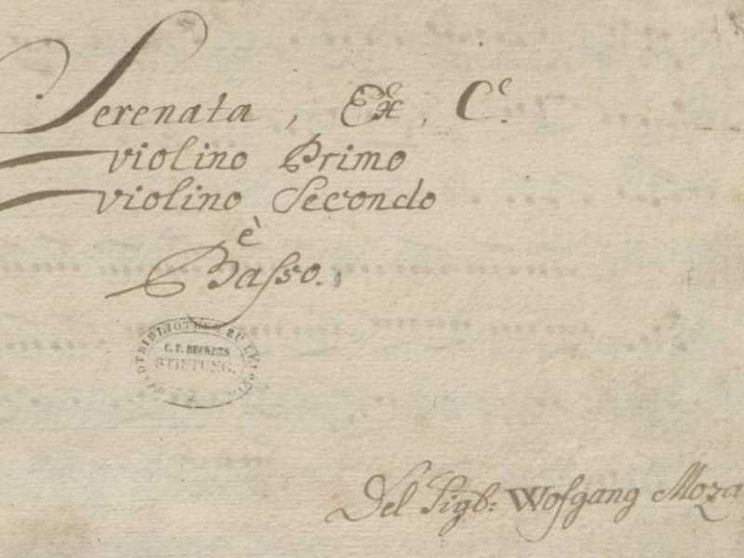 Serenata, Ex, C.
violino Primo
violino Secondo
è
Basso.
STADTBIBLIOTHEK ZU LEIPZIG
C. F. BECKERS
STIFTUNG.
Del Sigb: Wofgang Moza